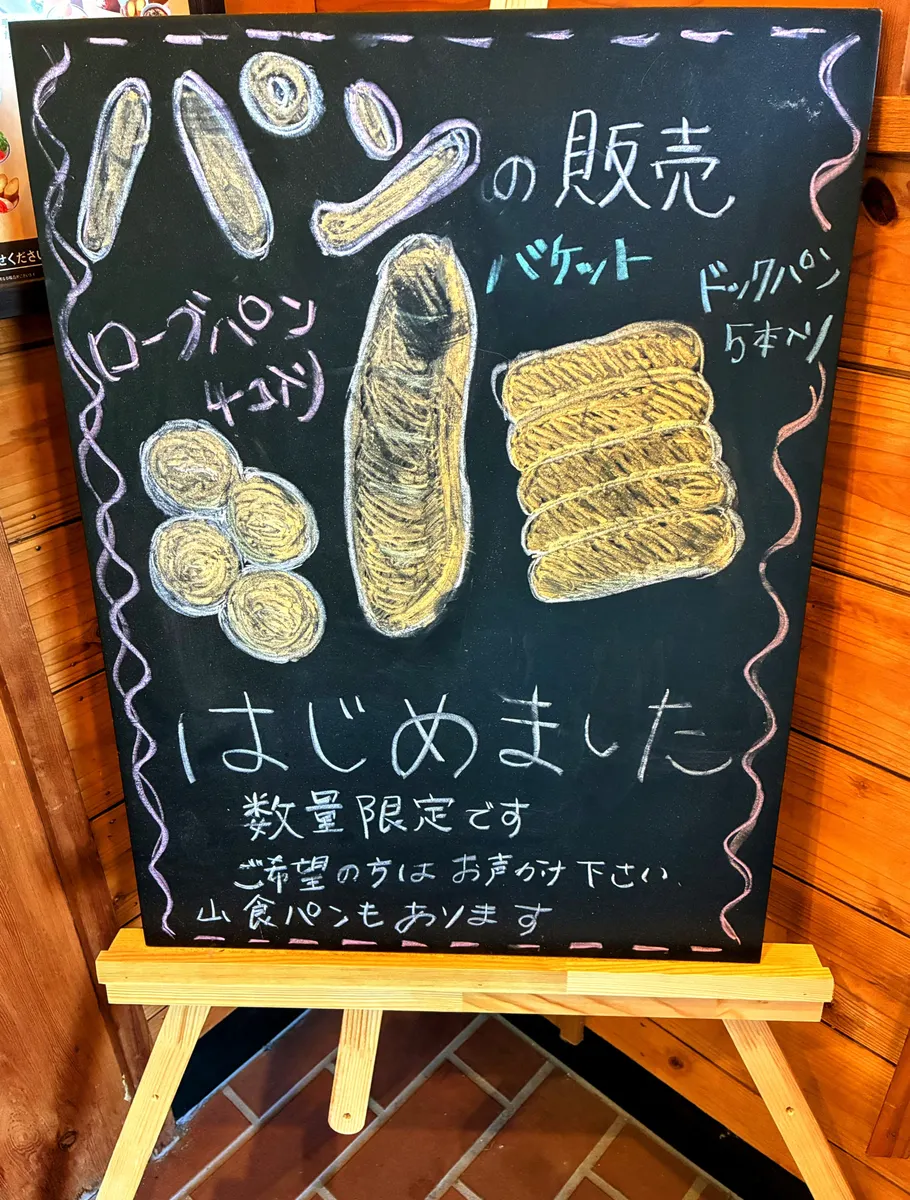 パンの販売
バケット
ドックパン
5本入り
ローブパン
4コ入り
はじめました
数量限定です
ご希望の方はお声がけ下さい
山食パンもあります
せください